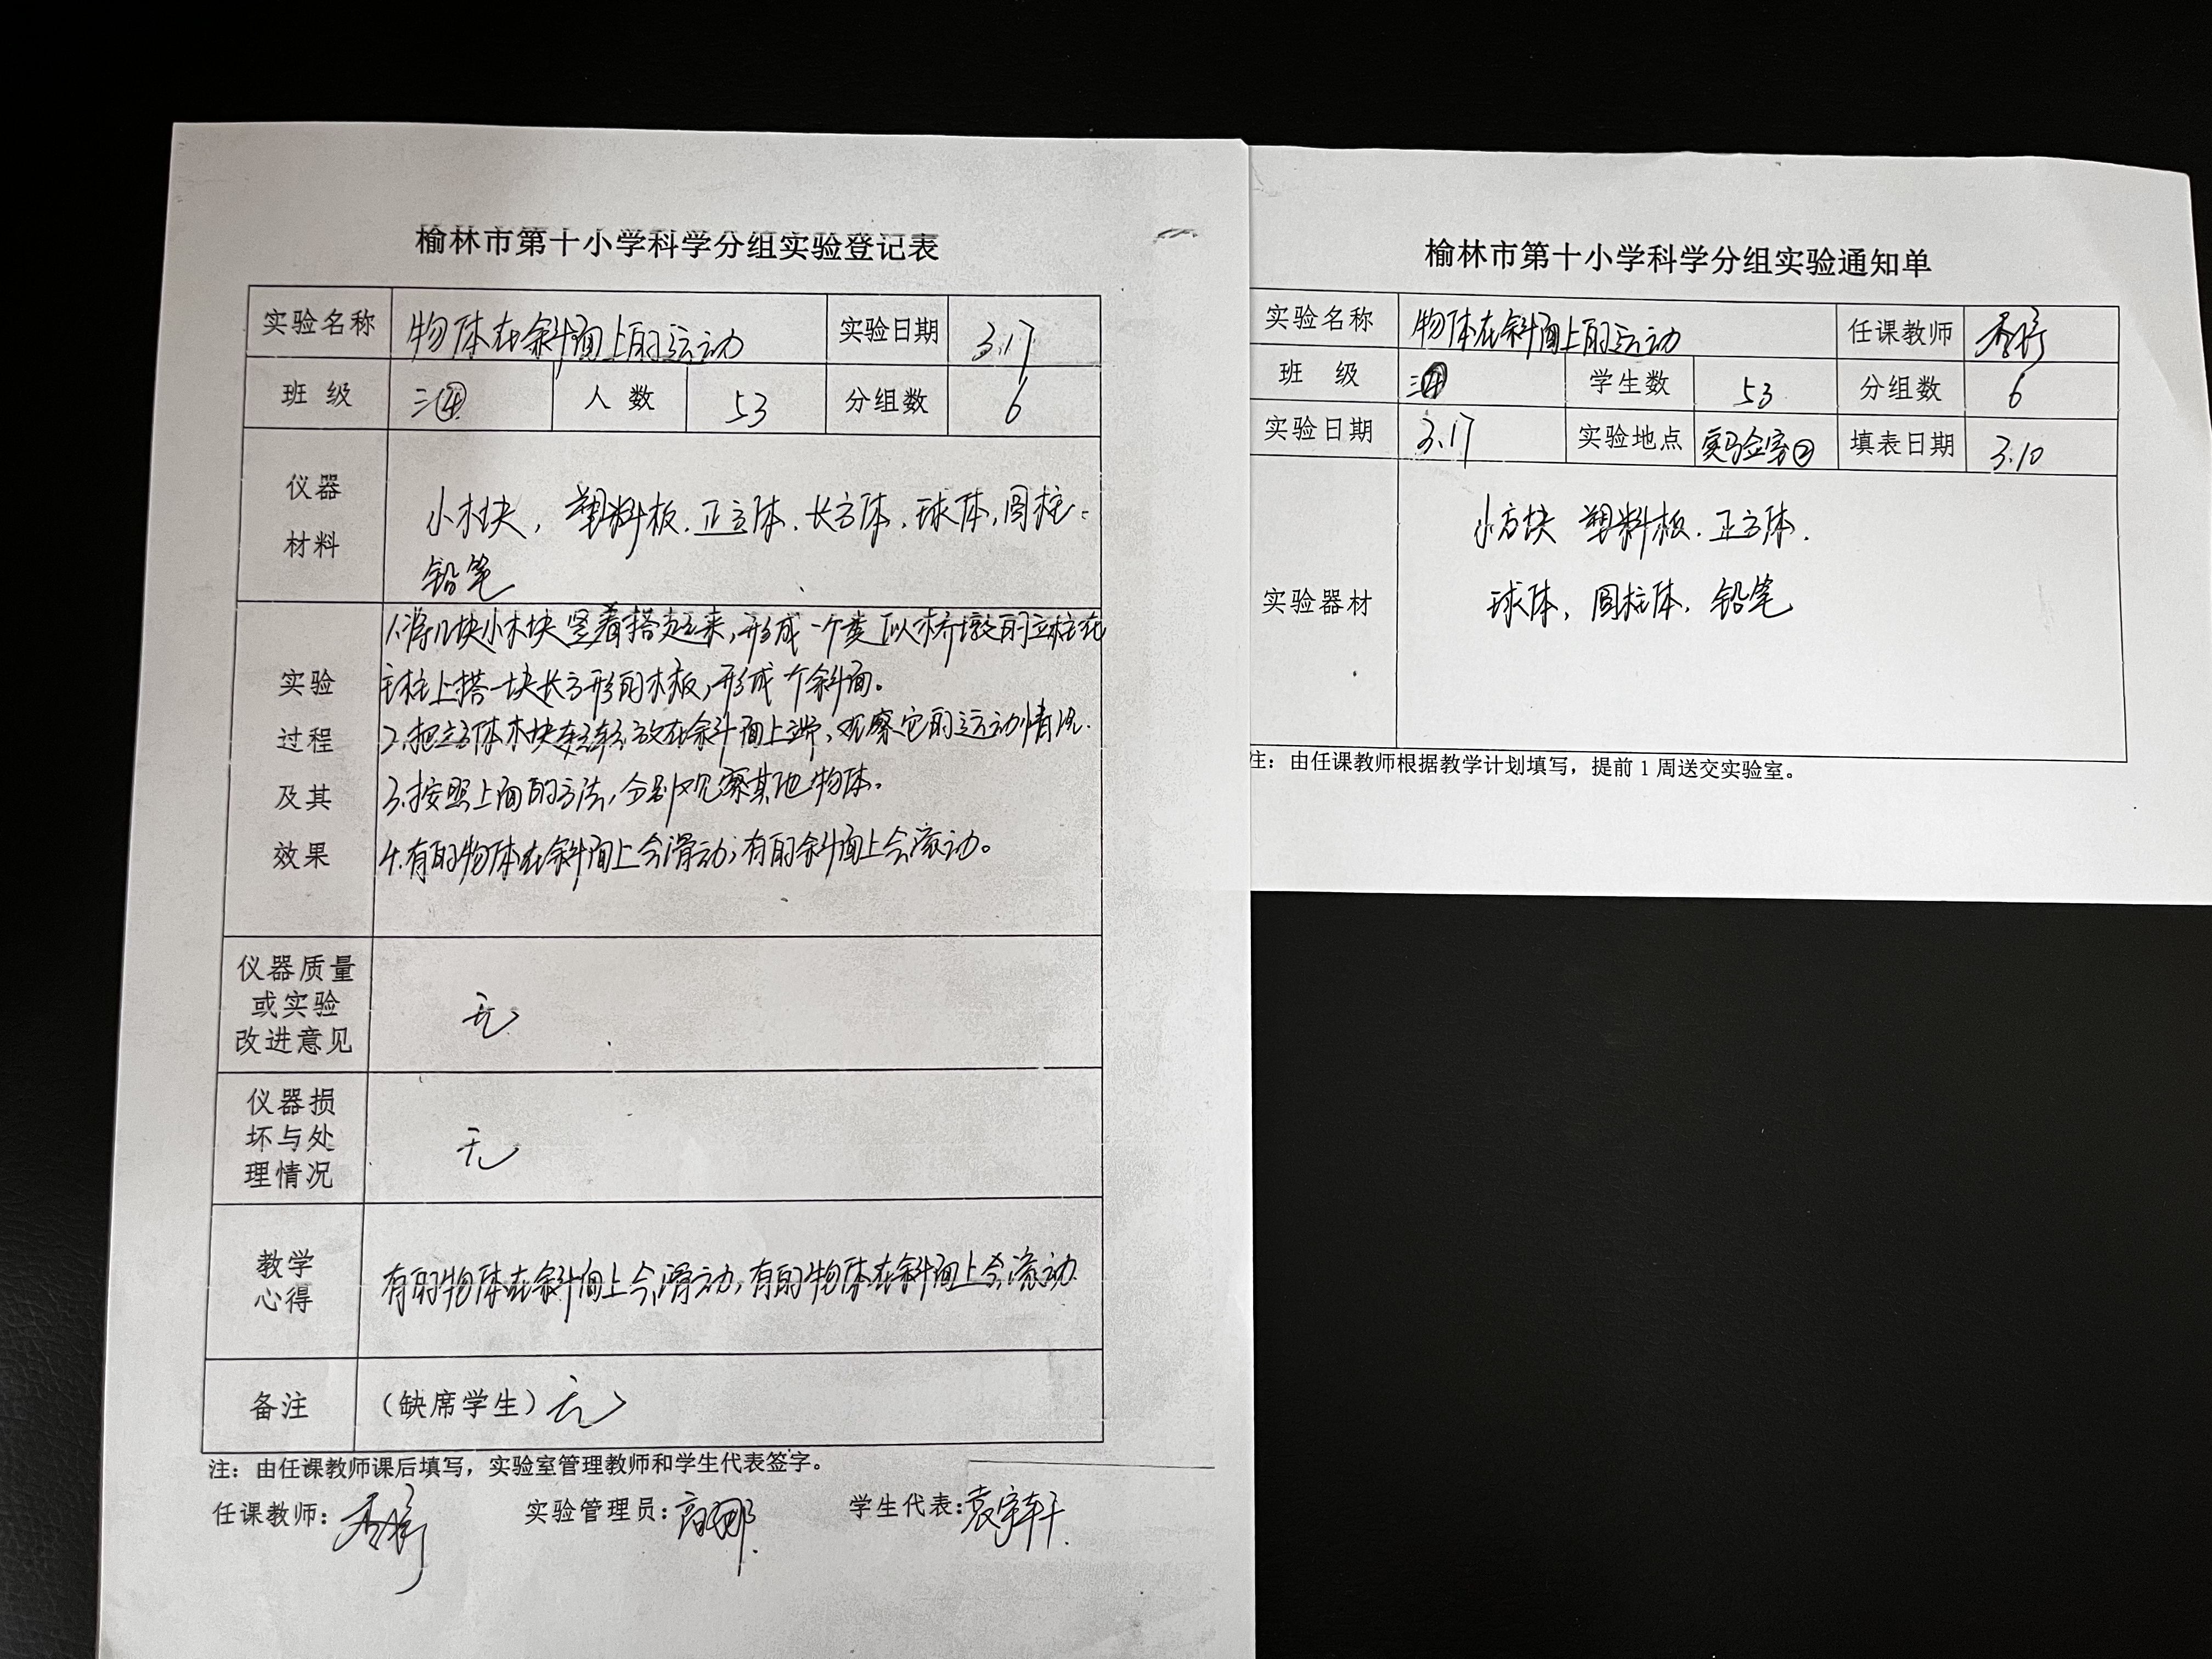 榆林市第十小学科学分组实验登记表
实验名称 物体在斜面上的运动 实验日期 3.17
班级 三④ 人数 53 分组数 6
仪器
材料
小木块，塑料板、正方体、长方体、球体，圆柱、
铅笔
实验
过程
及其
效果
1.将几块小木块竖着搭起来，形成一个类似桥墩的立柱在
主柱上搭一块长方形的木板，形成一个斜面。
2.把立方体木块轻轻放在斜面上端，观察它的运动情况.
3.按照上面的方法，分别观察其他物体。
4.有的物体在斜面上会滑动；有的斜面上会滚动。
仪器质量
或实验
改进意见
无
仪器损
坏与处
理情况
无
教学
心得
有的物体在斜面上会滑动，有的物体在斜面上会滚动
备注 （缺席学生）无
注：由任课教师课后填写，实验室管理教师和学生代表签字。
任课教师： 实验管理员：高娜. 学生代表：袁宇轩.
榆林市第十小学科学分组实验通知单
实验名称 物体在斜面上的运动 任课教师
班级 三④ 学生数 53 分组数 6
实验日期 3.17 实验地点 实验室② 填表日期 3.10
实验器材
小方块 塑料板、正方体.
球体，圆柱体，铅笔
注：由任课教师根据教学计划填写，提前1周送交实验室。